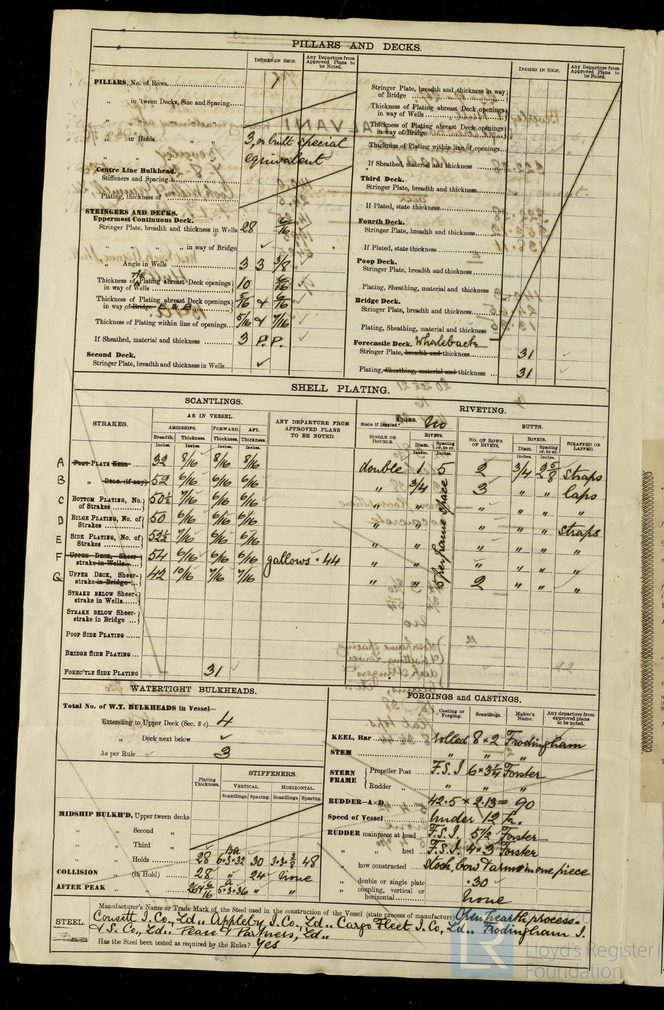 PILLARS AND DECKS.
INCHES IN SHIP.
Any Departure from Approved Plans to be Noted.
PILLARS, No. of Rows
" in 'tween Decks, Size and Spacing
" in Holds 3, or built special
equivalent
Centre Line Bulkhead.
Stiffeners and Spacing
Plating, thickness of
STRINGERS AND DECKS.
Uppermost Continuous Deck.
Stringer Plate, breadth and thickness in Wells 28 6/16
" " " in way of Bridge
" Angle in Wells 3 3 3/8
Thickness of Plating abreast Deck openings in way of Wells 10
Thickness of Plating abreast Deck openings in way of Bridge
Thickness of Plating within line of openings 5/16 & 7/16
If Sheathed, material and thickness 3 P.P.
Second Deck.
Stringer Plate, breadth and thickness in Wells
INCHES IN SHIP.
Any Departure from Approved Plans to be Noted.
Stringer Plate, breadth and thickness in way of Bridge
Thickness of Plating abreast Deck openings in way of Wells
Thickness of Plating abreast Deck openings in way of Bridge
Thickness of Plating within line of openings
If Sheathed, material and thickness
Third Deck.
Stringer Plate, breadth and thickness
If Plated, state thickness
Fourth Deck.
Stringer Plate, breadth and thickness
If Plated, state thickness
Poop Deck.
Stringer Plate, breadth and thickness
Plating, Sheathing, material and thickness
Bridge Deck.
Stringer Plate, breadth and thickness
Plating, Sheathing, material and thickness
Forecastle Deck. Whaleback
Stringer Plate, breadth and thickness 31
Plating, Sheathing, material and thickness 31
SHELL PLATING.
SCANTLINGS.
STRAKES.
AS IN VESSEL.
AMIDSHIPS. FORWARD. AFT.
Breadth. Thickness. Thickness. Thickness.
Inches. Inches. Inches.
ANY DEPARTURE FROM APPROVED PLANS TO BE NOTED.
A Flat Plate Keel 32 8/16 8/16 8/16
B " Dblg. (if any) 52 6/16 6/16 6/16
C Bottom Plating, No. of Strakes 50½ 7/16 6/16 6/16
D Bilge Plating, No. of Strakes 50 6/16 6/16 6/16
E Side Plating, No. of Strakes 52½ 7/16 6/16 6/16
F Upper Deck, Sheer-strake in Wells 54 6/16 6/16 6/16 gallows .44
G Upper Deck, Sheer-strake in Bridge 42 10/16 7/16 7/16
Strake below Sheer-strake in Wells
Strake below Sheer-strake in Bridge
Poop Side Plating
Bridge Side Plating
Forec'tle Side Plating 31
RIVETING.
EDGES. No
State if joggled?
SINGLE OR DOUBLE.
RIVETS.
Diam. Spacing cr. to cr.
BUTTS.
NO. OF ROWS OF RIVETS.
RIVETS.
Diam. Spacing cr. to cr.
STRAPPED OR LAPPED.
double 1 5 2 3/4 2 5/8 straps
" 3/4 3 " " laps
" " " " " "
" " " " " straps
" " " " " "
" " " " " "
" " 2 " " "
5 per frame space
WATERTIGHT BULKHEADS.
Total No. of W.T. BULKHEADS in Vessel—
Extending to Upper Deck (Sec. 3 c) 4
" Deck next below
As per Rule 3
Plating Thickness.
STIFFENERS.
VERTICAL. HORIZONTAL.
Scantlings. Spacing. Scantlings. Spacing.
MIDSHIP BULKH'D, Upper tween decks
" " Second "
" " Third "
" " Holds .28 6.3.32 30 48
COLLISION " (in Hold) .28 " 24 none
AFTER PEAK " " 5.3.36 " "
FORGINGS and CASTINGS.
Casting or Forging. Scantlings. Maker's Name. Any departure from approved plans to be noted.
KEEL, Bar Rolled 8 × 2 Frodingham
STEM " " "
STERN FRAME Propeller Post F.S.I 6×3¼ Forster
Rudder " " " "
RUDDER—A×D 42.5 × 2.13 = 90
Speed of Vessel under 12 k.
RUDDER mainpiece at head F.S.I. 5½ Forster
" " heel F.S.I. 4×3 Forster
" how constructed stock, bow & arms in one piece
" double or single plate .30
" coupling, vertical or horizontal none
STEEL. Manufacturer's Name or Trade Mark of the Steel used in the construction of the Vessel (state process of manufacture) Open hearth process.
Consett I. Co., Ld., Appleby I. Co., Ld., Cargo Fleet I. Co., Ld., Frodingham I.
& S. Co., Ld., Pease & Partners, Ld.,
Has the Steel been tested as required by the Rules? Yes
LR Lloyd's Register
Foundation